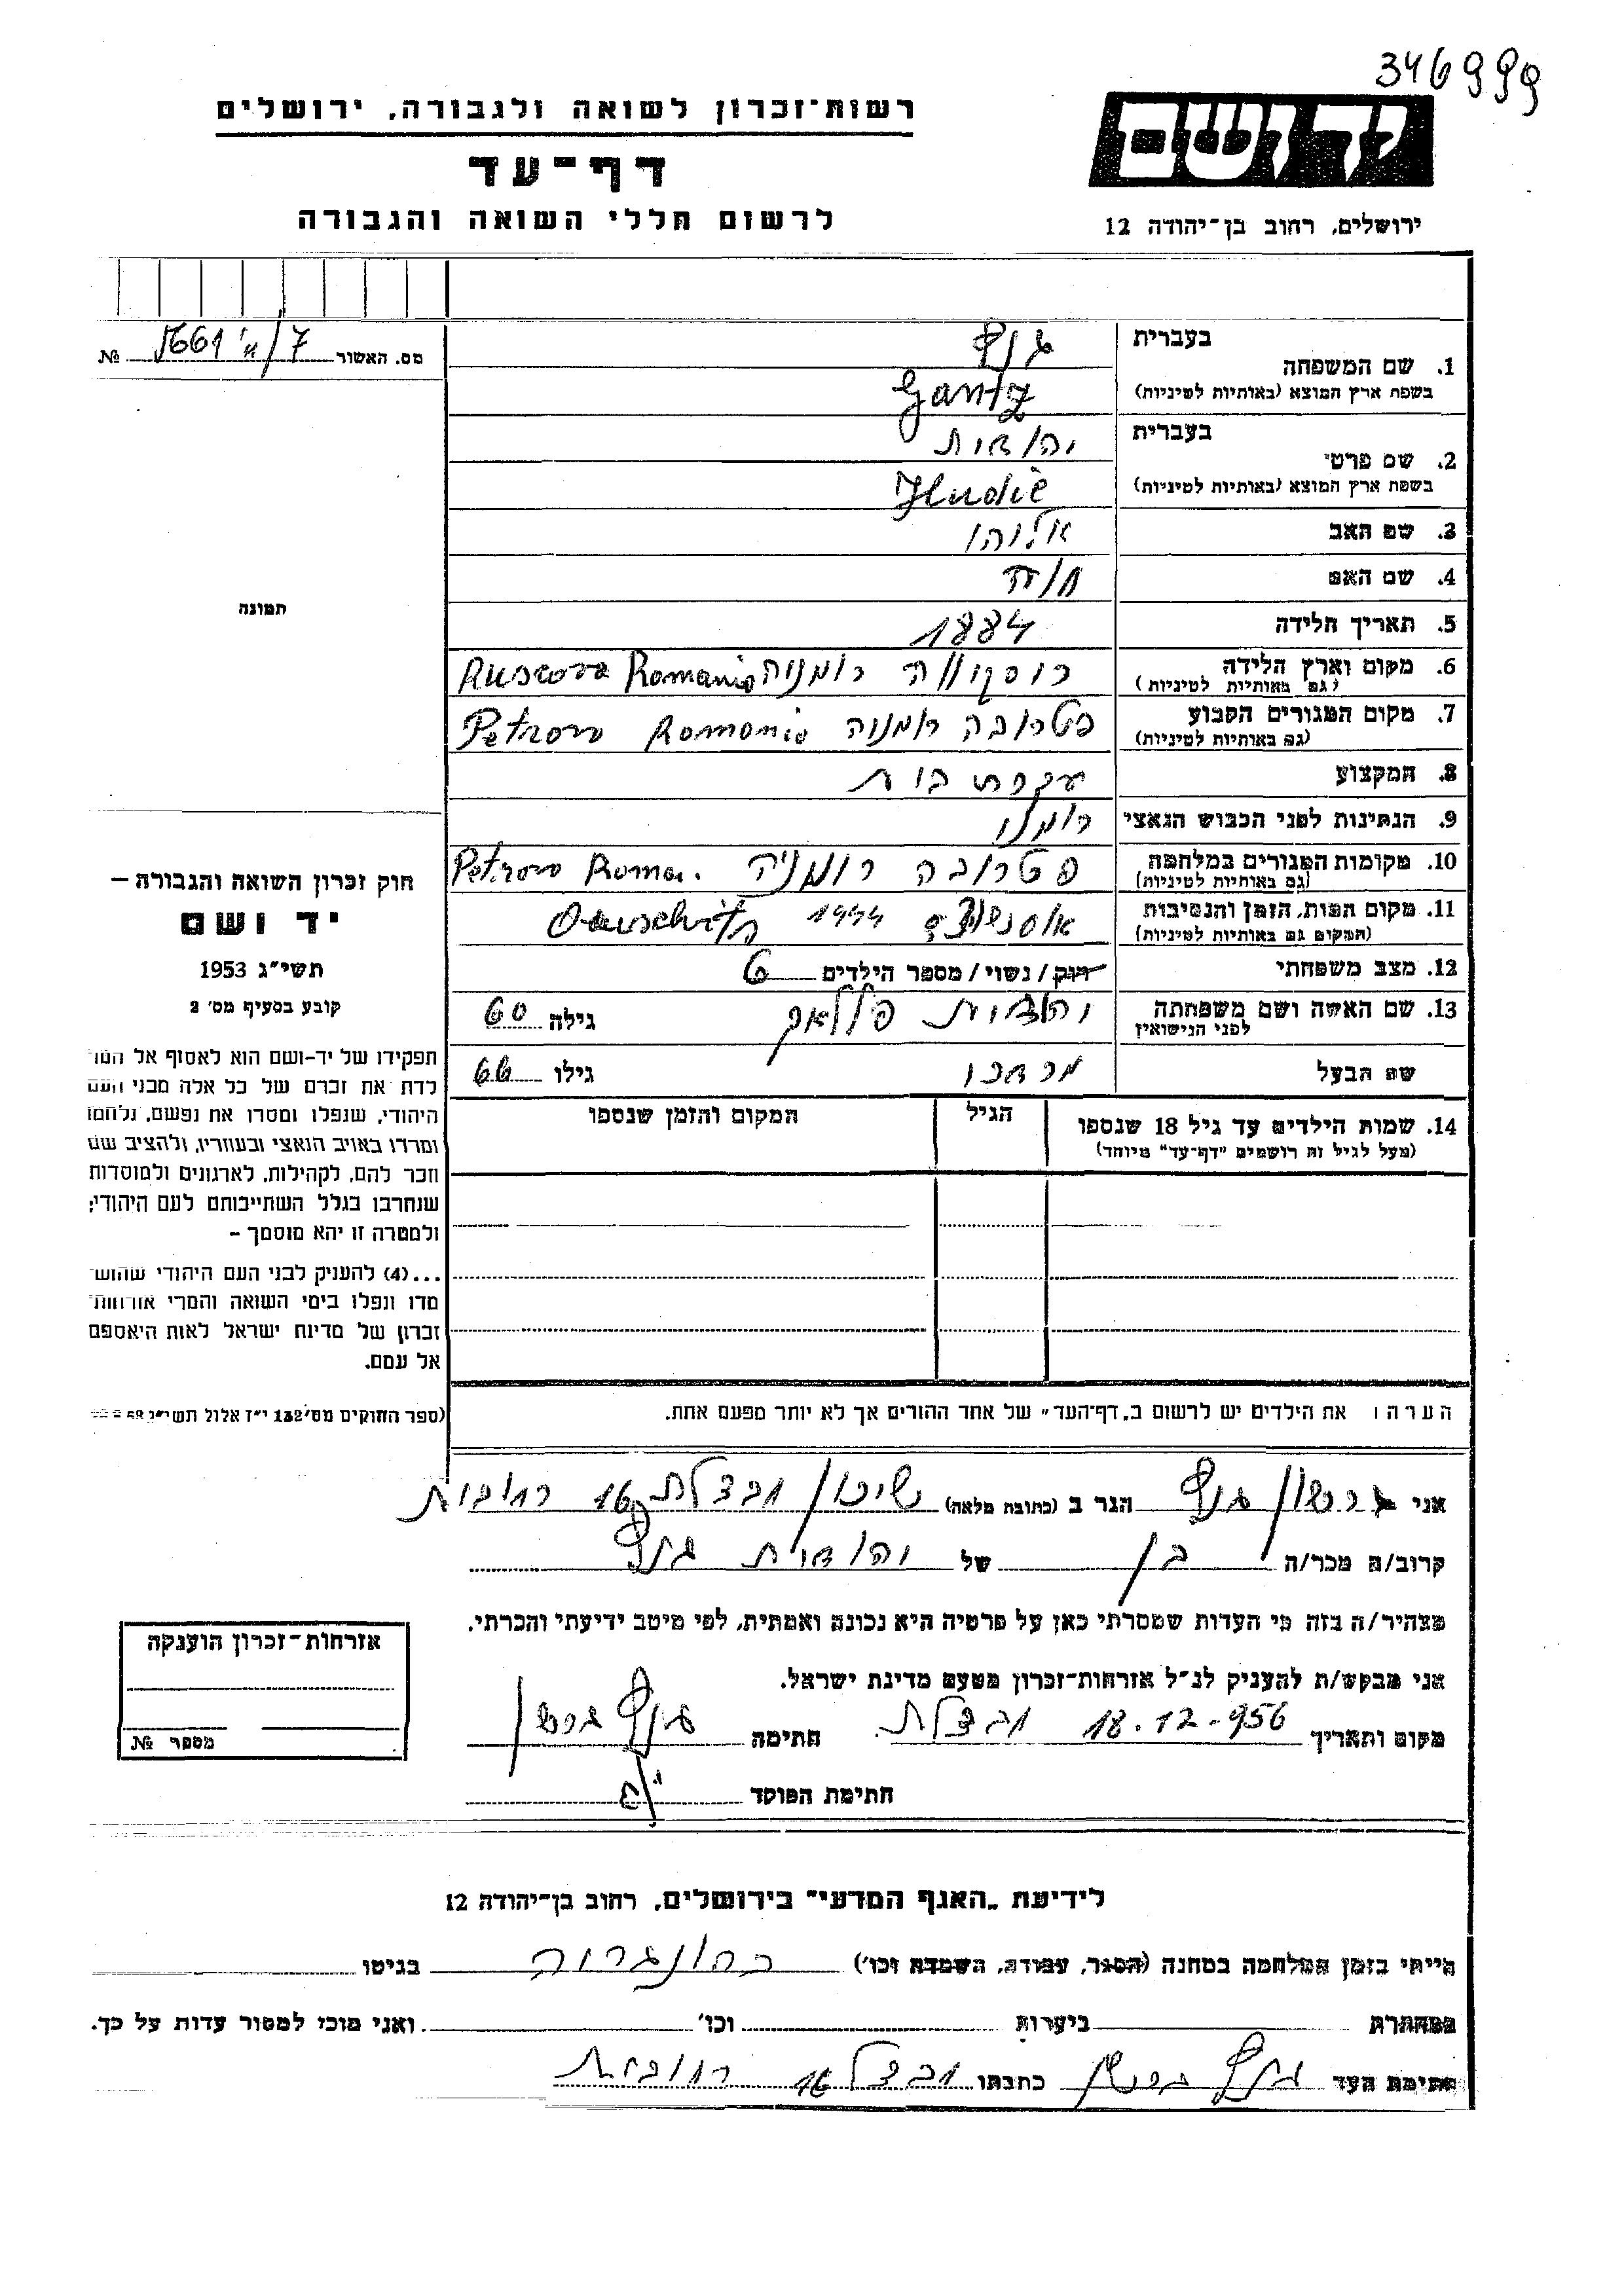 346999
רשות-זכרון לשואה ולגבורה, ירושלים
יד ושם
דף-עד
לרשום חללי השואה והגבורה
ירושלים, רחוב בן-יהודה 12
מס. האשור 7/ № 5661
1. שם המשפחה
בעברית גנץ
בשפת ארץ המוצא (באותיות לטיניות) Gantz
2. שם פרטי
בעברית יהודית
בשפת ארץ המוצא (באותיות לטיניות)
3. שם האב אליהו
4. שם האם חיה
5. תאריך הלידה 1884
6. מקום וארץ הלידה רוסקווה רומניה Ruscova Romania
(גם באותיות לטיניות)
7. מקום המגורים הקבוע פטרובה רומניה Petrova Romania
(גם באותיות לטיניות)
8. המקצוע עקרת בית
9. הנתינות לפני הכבוש הנאצי רומני
10. מקומות המגורים במלחמה פטרובה רומניה Petrova Roma.
(גם באותיות לטיניות)
11. מקום המות, הזמן והנסיבות 1944
(המקום גם באותיות לטיניות)
12. מצב משפחתי רווק/נשוי/מספר הילדים 6
13. שם האשה ושם משפחתה יהודית פללאק גילה 60
לפני הנישואין
שם הבעל מרדכי גילו 66
14. שמות הילדים עד גיל 18 שנספו
(מעל לגיל זה רושמים "דף-עד" מיוחד)
הגיל
המקום והזמן שנספו
הערה: את הילדים יש לרשום ב„דף-העד" של אחד ההורים אך לא יותר מפעם אחת.
תמונה
חוק זכרון השואה והגבורה —
יד ושם
תשי"ג 1953
קובע בסעיף מס' 2
תפקידו של יד-ושם הוא לאסוף אל המו
לדת את זכרם של כל אלה מבני העם
היהודי, שנפלו ומסרו את נפשם, נלחמו
ומרדו באויב הנאצי ובעוזריו, ולהציב שם
וזכר להם, לקהילות, לארגונים ולמוסדות
שנחרבו בגלל השתייכותם לעם היהודי;
ולמטרה זו יהא מוסמך –
...(4) להעניק לבני העם היהודי שהוש־
מדו ונפלו בימי השואה והמרי אזרחות־
זכרון של מדינת ישראל לאות היאספם
אל עמם.
(ספר החוקים מס' 132 י"ז אלול תשי"ג
אני גרשון גנץ הגר ב (כתובת מלאה) שיכון חבצלת 16 רחובות
קרוב/ה מכר/ה בן של יהודית גנץ
מצהיר/ה בזה כי העדות שמסרתי כאן על פרטיה היא נכונה ואמתית, לפי מיטב ידיעתי והכרתי.
אני מבקש/ת להעניק לנ"ל אזרחות-זכרון מטעם מדינת ישראל.
מקום ותאריך חבצלת 18.12.956 חתימה גנץ גרשון
חתימת הפוקד
אזרחות-זכרון הוענקה
מספר №
לידיעת „האגף המדעי" בירושלים, רחוב בן-יהודה 12
הייתי בזמן המלחמה במחנה (הסגר, עבודה, השמדה וכו') בהונגריה בגיטו
במחתרת ביערות וכו' ואני מוכן למסור עדות על כך.
חתימת העד גנץ גרשון כתבתו חבצלת 16 רחובות